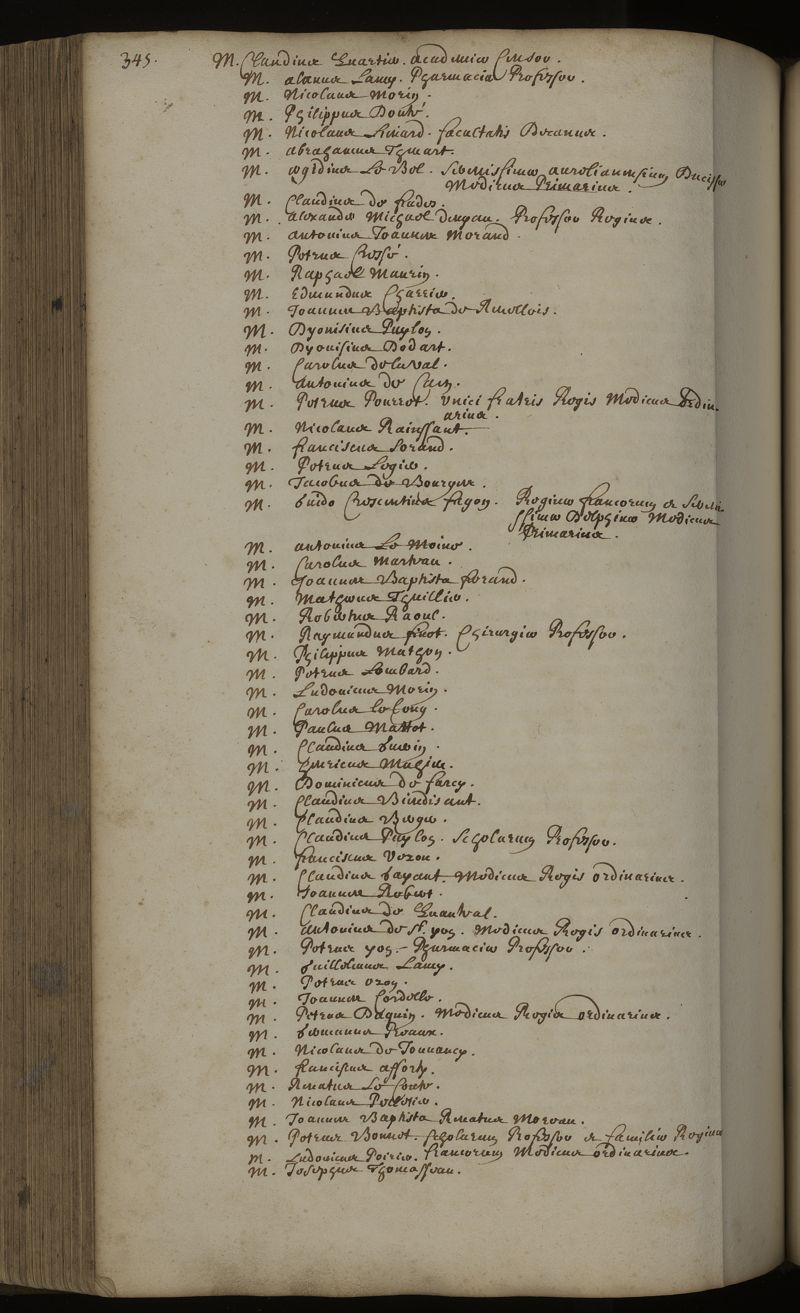 345. M. Claudius Quartier. academiæ Censor.
M. alanus Lamy. Pharmaciæ Professor.
M. Nicolaus Morin.
M. Philippus Douté.
M. Nicolaus Lienard. facultatis Decanus.
M. abrahamus Thuart.
M. ægidius Le Bel. Serenissimæ aurelianensium Ducissæ
Medicus Primarius.
M. Claudius de frades.
M. alexander Michael Denyau. Professor Regius.
M. antonius Joannes Morand.
M. Petrus Cressé.
M. Raphael Maurin.
M. Edmundus Charrier.
M. Joannes Baptista de Revellois.
M. Dyonisius Puylon.
M. Dyonisius Dodart.
M. Carolus Delaval.
M. Antonius de Caen.
M. Petrus Perrot. Unici fratris Regis Medicus Ordin-
arius.
M. Nicolaus Rainssant.
M. franciscus Lorand.
M. Petrus Legier.
M. Jacobus de Bourges.
M. Guido Crescentius fagon. Reginæ francorum et Sereni-
ssimæ Delphinæ Medicus
Primarius.
M. antonius Le Moine.
M. Carolus Marteau.
M. Joannes Baptista ferand.
M. Mathæus Thuillier.
M. Robertus Raoul.
M. Raymundus finot. Chirurgiæ Professor.
M. Philippus Mathon.
M. Petrus Lombard.
M. Ludovicus Morin.
M. Carolus le Long.
M. Paulus Mattot.
M. Claudius Guerin.
M. Dominicus de farcy.
M. Claudius Bindisant.
M. Claudius Berger.
M. Claudius Puylon. Scholarum Professor.
M. franciscus Vezou.
M. Claudius Gayant. Medicus Regis ordinarius.
M. Joannes Robert.
M. Claudius de Quanteal.
M. Antonius de St. yon. Medicus Regis ordinarius.
M. Petrus yon. Pharmaciæ Professor.
M. Guillelmus Lamy.
M. Petrus Ozon.
M. Joannes Cordelle.
M. Petrus Daquin. Medicus Regis ordinarius.
M. Germanus Preaux.
M. Nicolaus de Jouvancy.
M. franciscus afforty.
M. Renatus Le Conte.
M. Nicolaus Pelletier.
M. Joannes Baptista Renatus Moreau.
M. Petrus Bonnet. Scholarum Professor et familiæ Reginæ
francorum Medicus ordinarius.
M. Ludovicus Poirier.
M. Josephus Thomasseau.